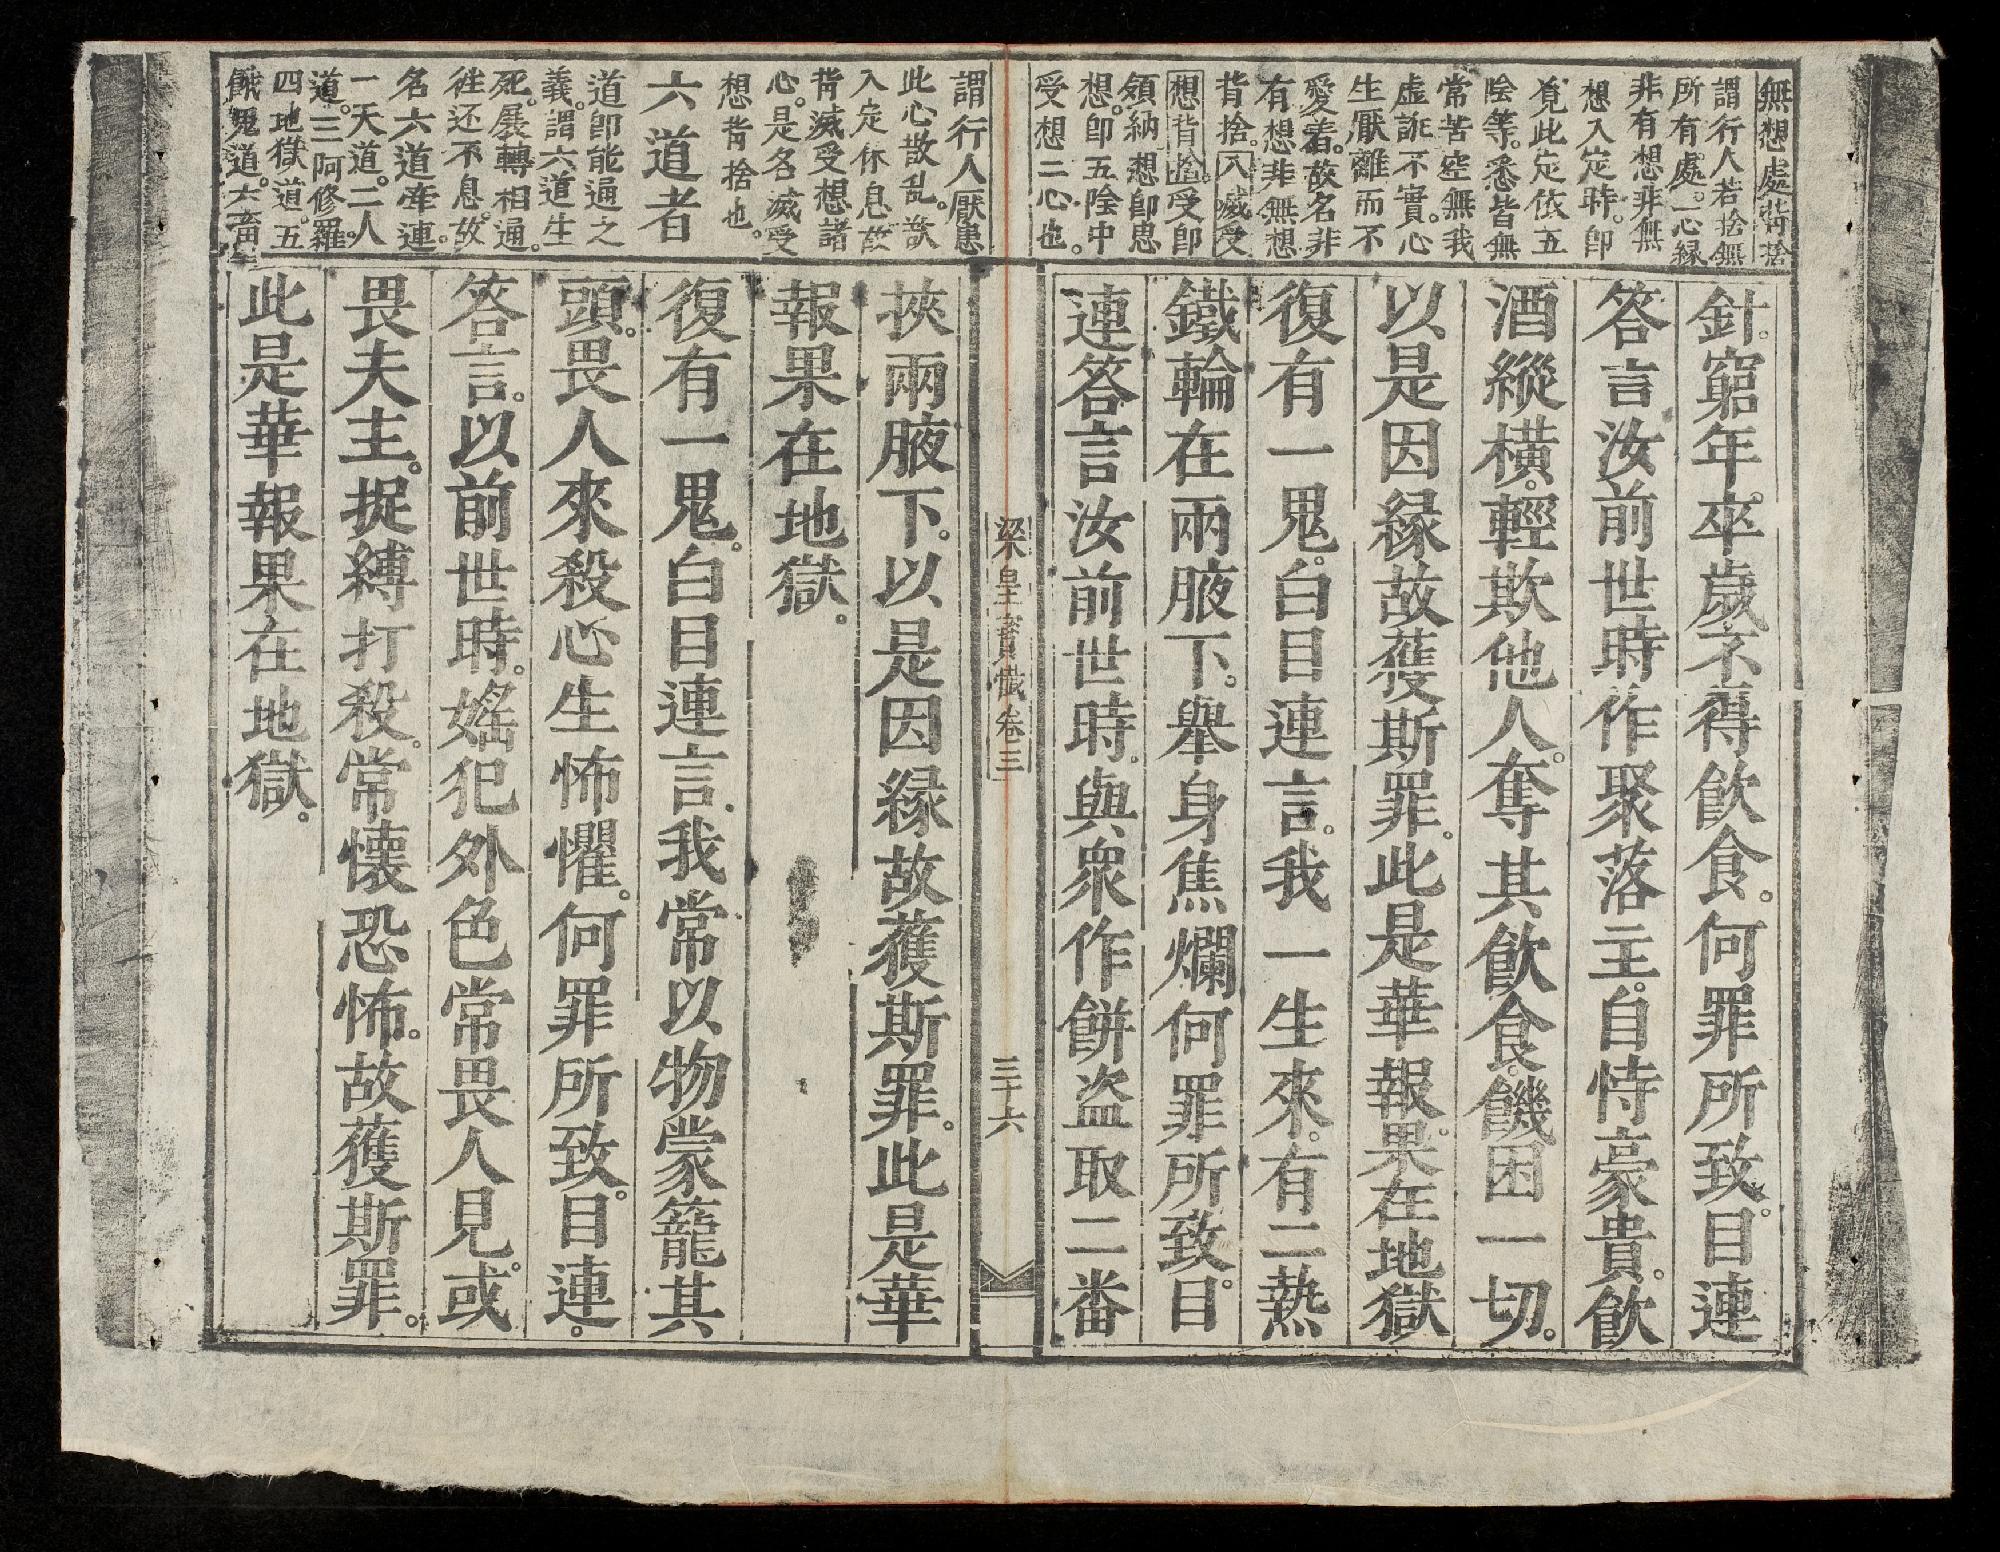 無想處背捨
謂行人若捨無
所有處。一心緣
非有想非無
想入定時。即
覔此定依五
陰等。悉皆無
常苦空無我
虛誑不實。心
生厭離而不
愛着。故名非
有想非無想
背捨。八滅受
想背捨。受即
領納想即思
想。即五陰中
受想二心也。
針。窮年卒歲不得飲食。何罪所致。目連
答言汝前世時作聚落主。自恃豪貴。飲
酒縱橫。輕欺他人。奪其飲食。饑困一切。
以是因緣故獲斯罪。此是華報。果在地獄
復有一鬼。白目連言。我一生來。有二熱
鐵輪在兩腋下。舉身焦爛何罪所致。目
連答言汝前世時。與衆作餅盗取二番
梁皇寶懺卷三
三十六
謂行人厭患
此心散乱。欲
入定休息故
背滅受想諸
心。是名滅受
想背捨也。
六道者
道即能通之
義。謂六道生
死。展轉相通。
徃还不息。故
名六道牽連。
一天道。二人
道。三阿修羅。
四地獄道。五
餓鬼道。六畜
挾兩腋下。以是因緣故獲斯罪。此是華
報果在地獄。
復有一鬼。白目連言。我常以物蒙籠其
頭。畏人來殺心生怖懼。何罪所致。目連。
答言。以前世時。婬犯外色常畏人見。或
畏夫主。捉縛打殺。常懷恐怖。故獲斯罪。
此是華報果在地獄。